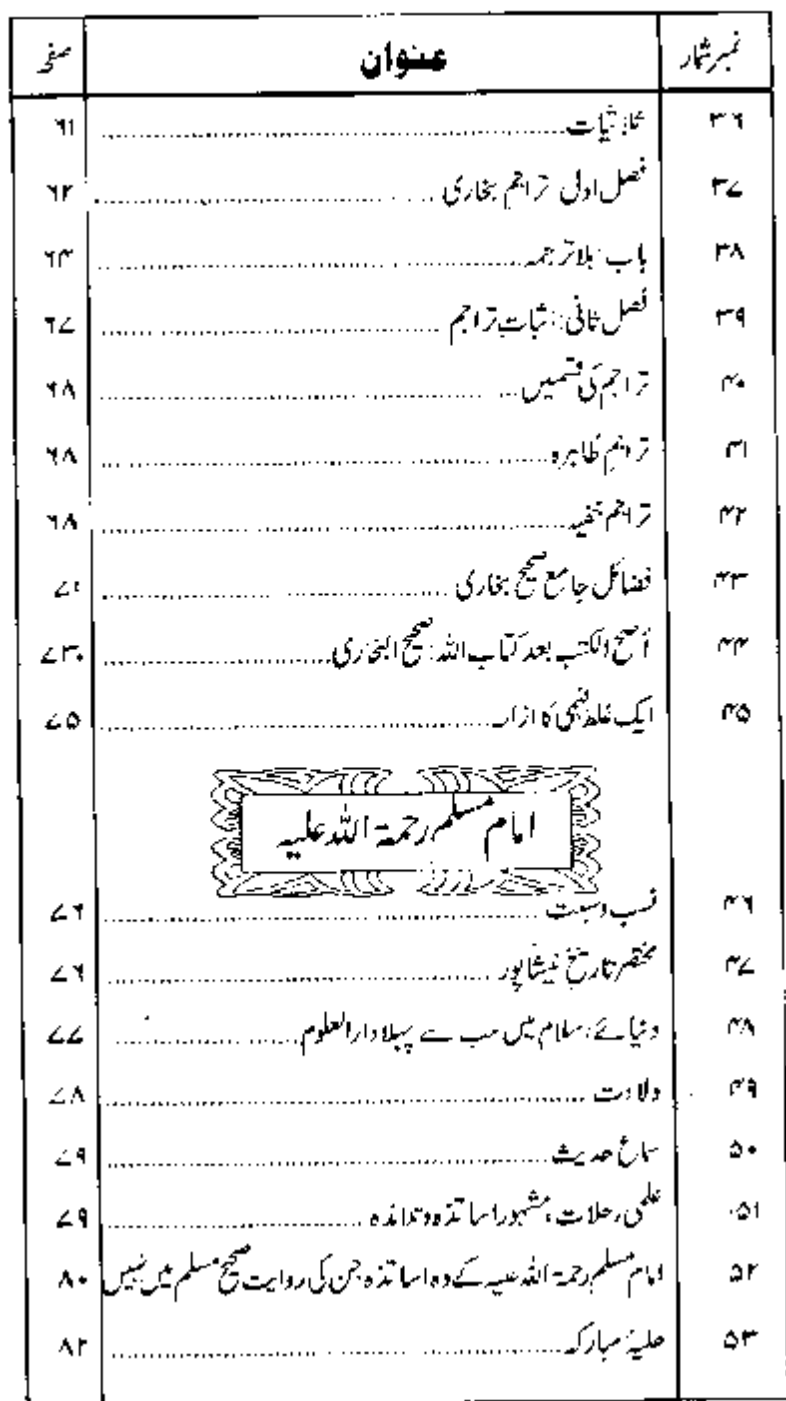 نمبر شمار عنوان صفحہ
۳۶ ثلاثیات ۶۱
۳۷ فصل اول تراجم بخاری ۶۲
۳۸ باب بلا ترجمہ ۶۴
۳۹ فصل ثانی: اثبات تراجم ۶۷
۴۰ تراجم کی قسمیں ۶۸
۴۱ تراجم ظاہرہ ۶۸
۴۲ تراجم خفیہ ۶۸
۴۳ فضائل جامع صحیح بخاری ۷۱
۴۴ أصح الکتب بعد کتاب اللہ: صحیح البخاری ۷۳
۴۵ ایک غلط فہمی کا ازالہ ۷۵
امام مسلم رحمۃ اللہ علیہ
۴۶ نسب ونسبت ۷۶
۴۷ مختصر تاریخ نیشاپور ۷۶
۴۸ دنیائے اسلام میں سب سے پہلا دارالعلوم ۷۷
۴۹ ولادت ۷۸
۵۰ سماع حدیث ۷۹
۵۱ علمی رحلات، مشہور اساتذہ وتلامذہ ۷۹
۵۲ امام مسلم رحمۃ اللہ علیہ کے وہ اساتذہ جن کی روایت صحیح مسلم میں نہیں ۸۰
۵۳ حلیۂ مبارکہ ۸۲